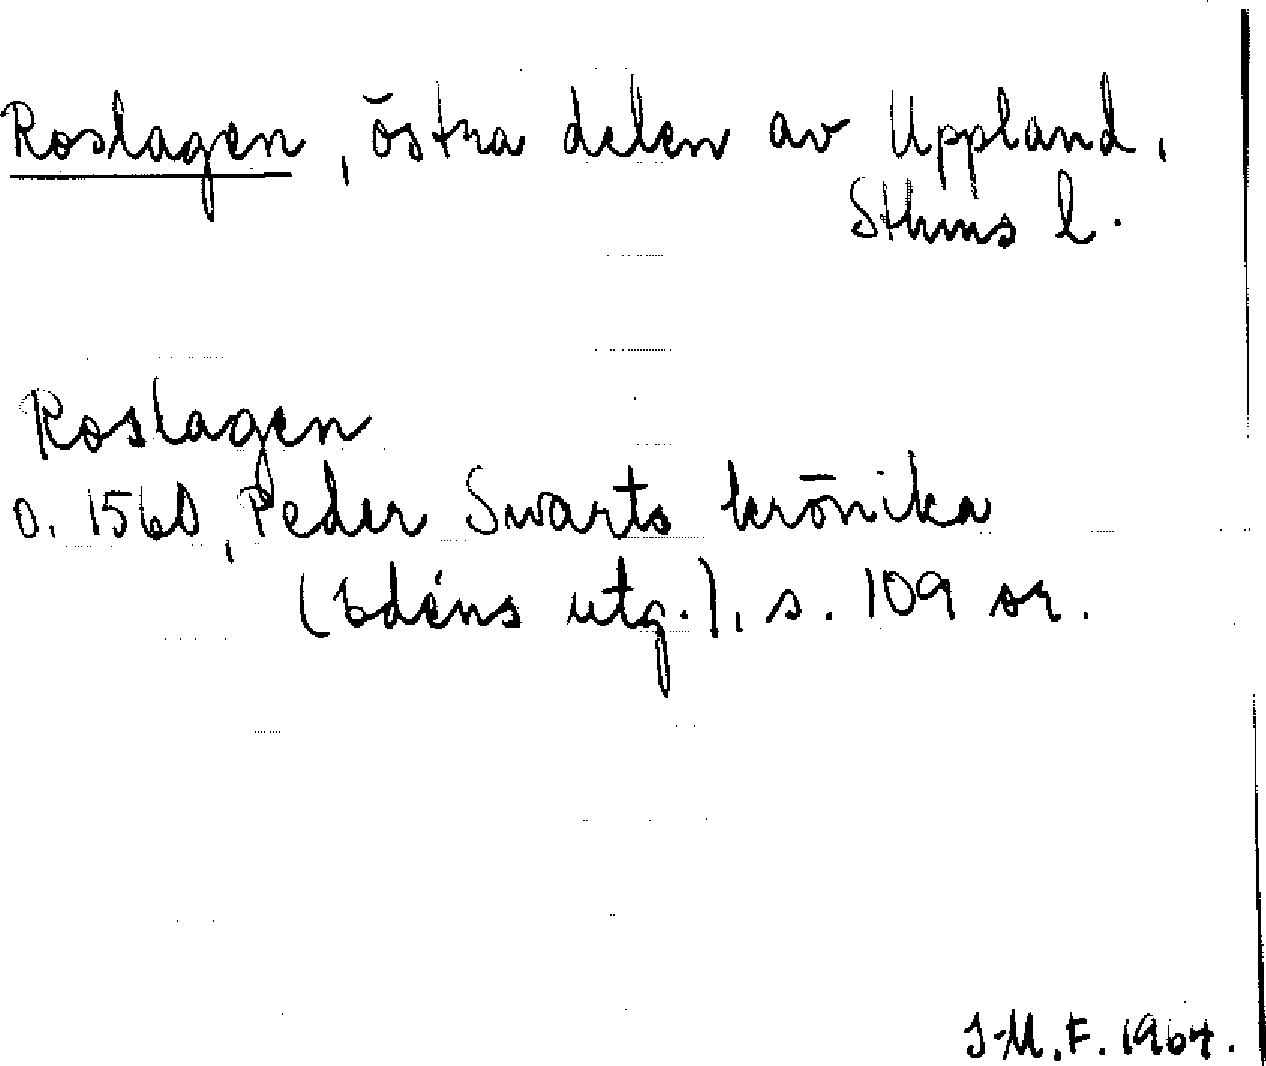 Roslagen, östra delen av Uppland,
Sthms l.
Roslagen
o. 1560, Peder Swarts krönika
(Edéns utg.), s. 109 or.
I.M.F. 1964.